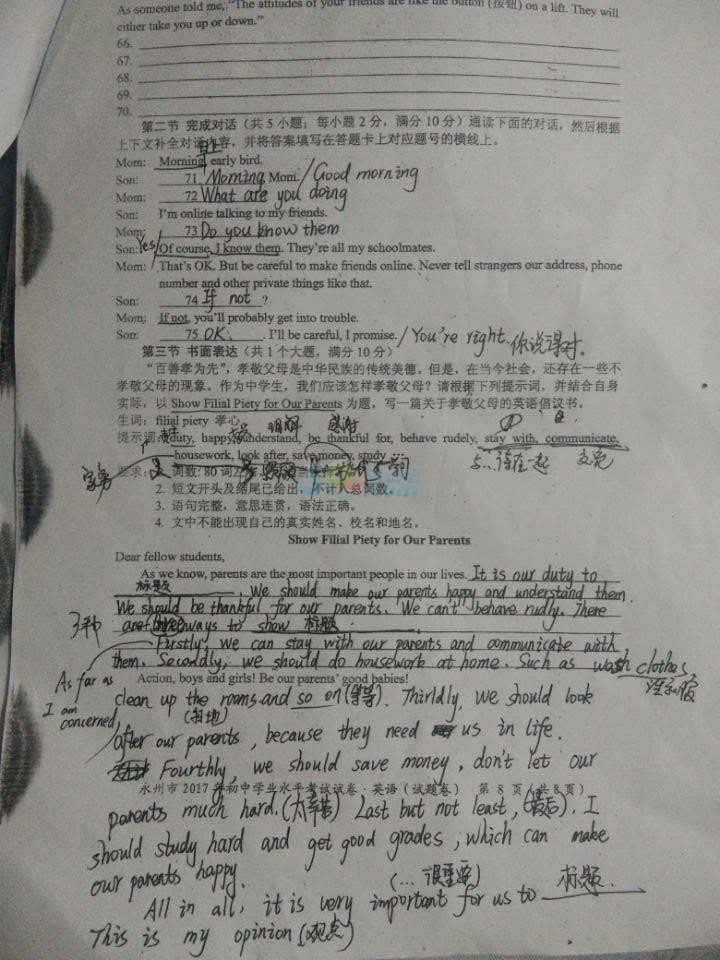 As someone told me, "The attitudes of your friends are like the button (按钮) on a lift. They will
either take you up or down."
66.
67.
68.
69.
70.
第二节 完成对话（共 5 小题；每小题 2 分，满分 10 分）通读下面的对话，然后根据
上下文补全对话内容，并将答案填写在答题卡上对应题号的横线上。
Mom: Morning, early bird.
Son: 71 Morning, Mom. / Good morning
Mom: 72 What are you doing
Son: I'm online talking to my friends.
Mom: 73 Do you know them
Son: Yes/ Of course, I know them. They're all my schoolmates.
Mom: That's OK. But be careful to make friends online. Never tell strangers our address, phone
number and other private things like that.
Son: 74 If not ?
Mom: If not, you'll probably get into trouble.
Son: 75 OK. . I'll be careful, I promise. / You're right. 你说得对。
第三节 书面表达（共 1 个大题，满分 10 分）
"百善孝为先"，孝敬父母是中华民族的传统美德。但是，在当今社会，还存在一些不
孝敬父母的现象。作为中学生，我们应该怎样孝敬父母？请根据下列提示词，并结合自身
实际，以 Show Filial Piety for Our Parents 为题，写一篇关于孝敬父母的英语倡议书。
生词：filial piety 孝心 理解 感谢
提示词：duty, happy, understand, be thankful for, behave rudely, stay with, communicate,
housework, look after, save money, study
家务 照顾 与…待在一起 交流
要求：1. 词数：80 词左右
2. 短文开头及结尾已给出，不计入总词数。
3. 语句完整，意思连贯，语法正确。
4. 文中不能出现自己的真实姓名、校名和地名。
Show Filial Piety for Our Parents
Dear fellow students,
As we know, parents are the most important people in our lives. It is our duty to
标题. We should make our parents happy and understand them.
We should be thankful for our parents. We can't behave rudly. There
are three ways to show 标题.
3种
Firstly, we can stay with our parents and communicate with
them. Secondly, we should do housework at home. Such as wash clothes,
洗衣服
As far as
I am
concerned,
Action, boys and girls! Be our parents' good babies!
clean up the rooms and so on (等等). Thirldly, we should look
(扫地)
after our parents, because they need us in life.
Fourthly, we should save money, don't let our
永州市 2017 年初中学业水平考试试卷·英语（试题卷） 第 8 页（共 8 页）
parents much hard. (太辛苦) Last but not least, (最后). I
should study hard and get good grades, which can make
our parents happy.
(… 很重要)
All in all, it is very important for us to 标题.
This is my opinion (观点)